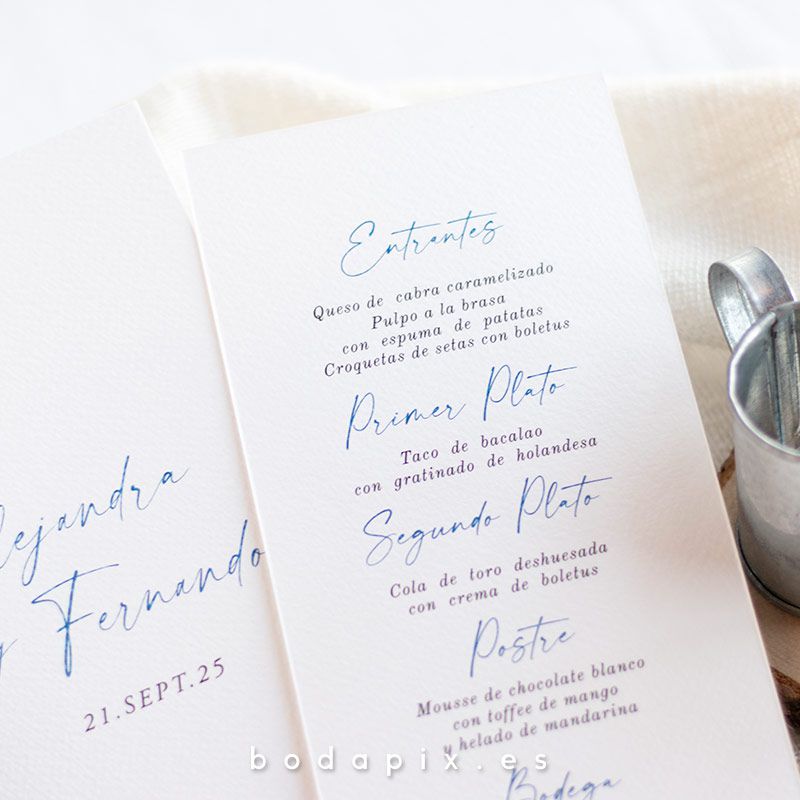 Entrantes
Queso de cabra caramelizado
Pulpo a la brasa
con espuma de patatas
Croquetas de setas con boletus
Primer Plato
Taco de bacalao
con gratinado de holandesa
Segundo Plato
Cola de toro deshuesada
con crema de boletus
Postre
Mousse de chocolate blanco
con toffee de mango
y helado de mandarina
Bodega
lejandra
y Fernando
21.SEPT.25
bodapix.es